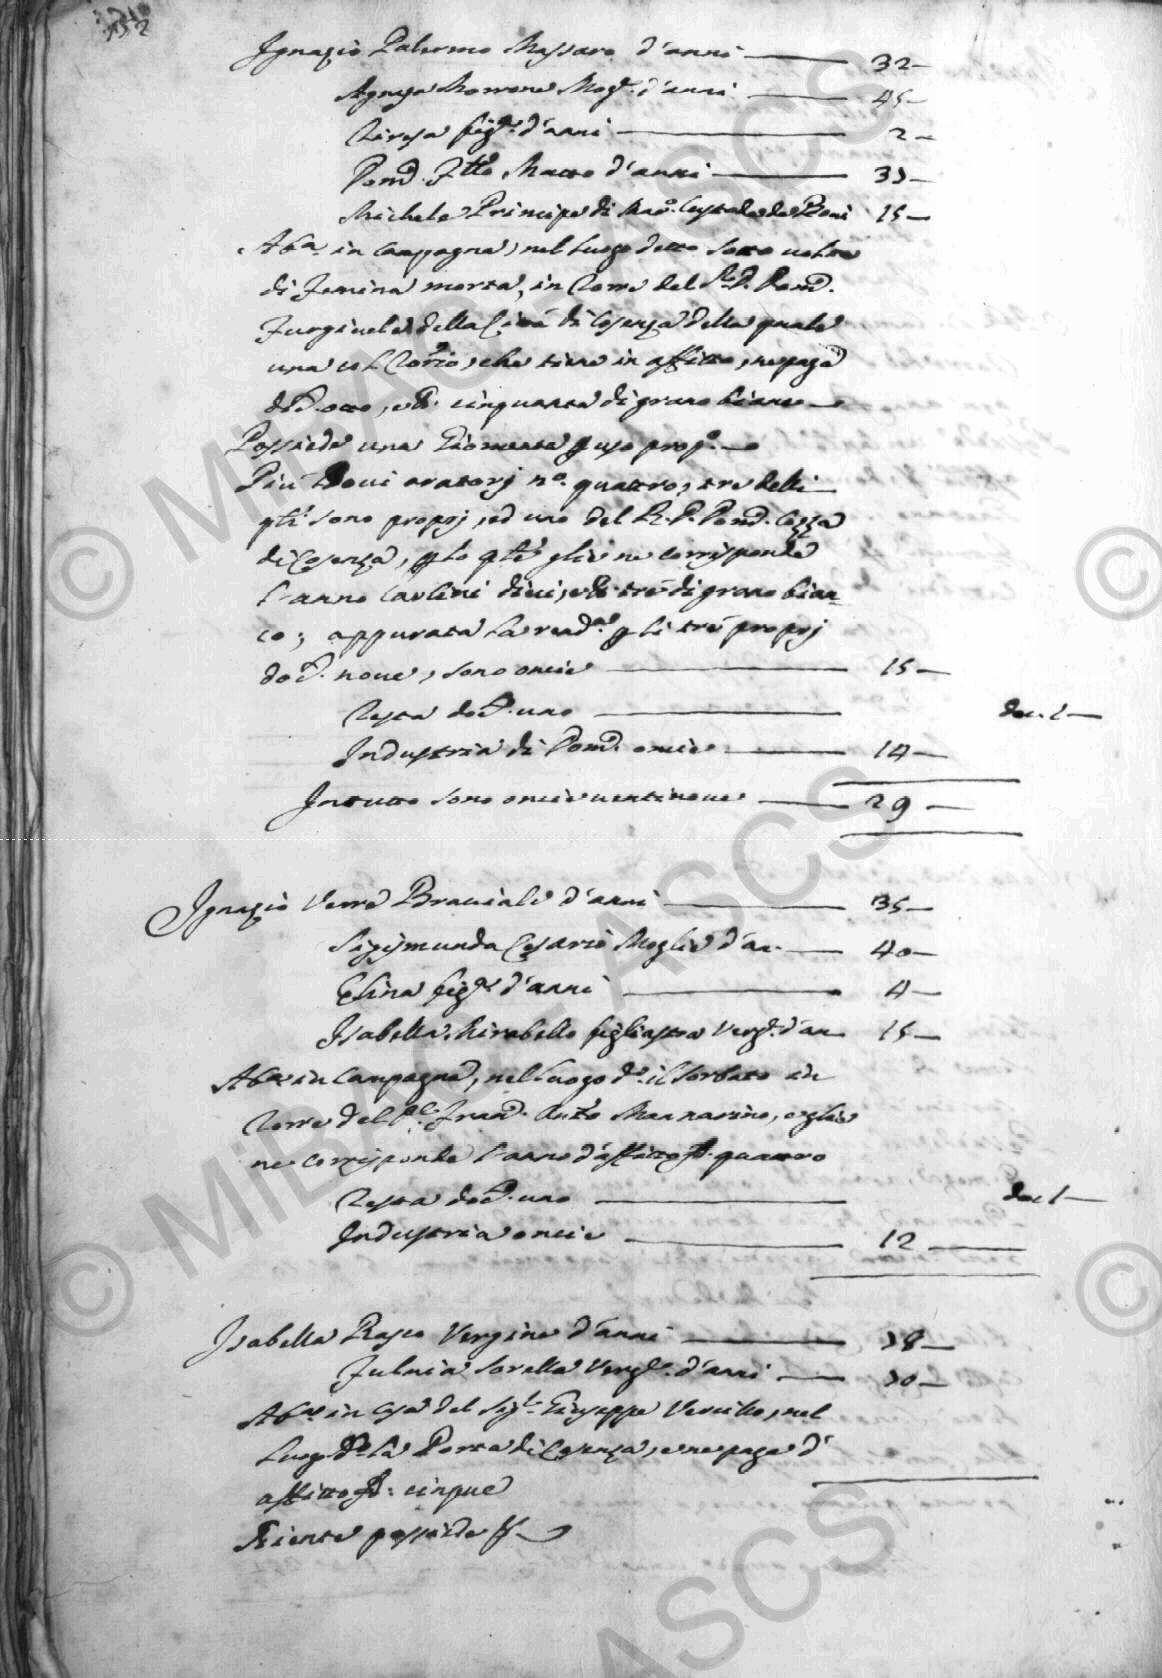 152
Ignazio Palermo Massaro d'anni 32
Agnesa Morrone Mog.e d'anni 45
Teresa fig.a d'anni 2
Dom.co f.tto Matto d'anni 33
Michele Principe di Custode de Bovi 15
Ab.a in campagna, nel luogo detto sotto
di Femina morta, in Torre del D. Dom.co
Furgiuele della Città di Cosenza della quale
una col che tiene in affitto, ne paga
doc.ti otto, e cinquanta di grano bianco
Possiede una Giomenta p uso prop.o
Più Bovi aratorj n.o quattro, tre delli
q.li sono proprj, ed uno del R. D. Dom.co
di Cosenza, p lo q.le glie ne corrisponde
l'anno Carlini dieci, e tre di grano bian-
co; appurata la rend.a p li tre proprj
doc.ti nove, sono oncie 15
Testa doc.ti uno doc. 1
Industria di Dom.co oncie 14
In tutto sono oncie ventinove 29
Ignazio Verre Bracciale d'anni 35
Sigismunda Cesario Moglie d'an. 40
Elina fig.a d'anni 4
Isabella Mirabello figliastra Verg.e d'an. 15
Ab.a in Campagna, nel luogo d.o il Sorbato in
Torre del Fran.co Ant.o Mannarino, e glie
ne corrisponde l'anno d'affitto quattro
Testa doc.ti uno doc. 1
Industria oncie 12
Isabella Rasco Vergine d'anni 38
Fulvia sorella Verg.e d'anni 30
Ab.o in casa del Sig.r Giuseppe Vercillo, nel
luogo d.o la Porta di Cosenza, e ne paga d'
affitto cinque
Niente possiede
© MIBAC - ASCS
© MIBAC - ASCS
©
©
ASCS